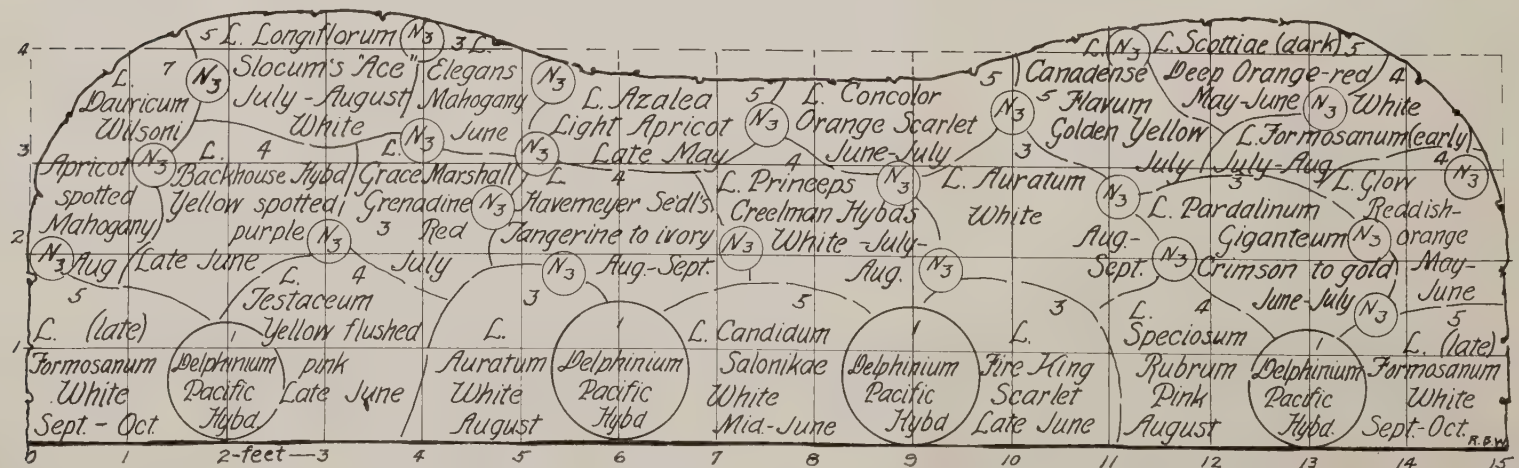 5 L. Longiflorum
Slocum's "Ace"
July-August
White
N3
3 L.
Elegans
Mahogany
June
N3
L.
7
Dauricum
Wilsoni
Apricot
spotted
Mahogany
Aug
N3
N3
L. Azalea
Light Apricot
Late May
5
N3
L. Concolor
Orange Scarlet
June-July
5
N3
L.
Canadense
5 Flavum
Golden Yellow
July
N3
L. Scottiae (dark)
Deep Orange-red
May-June
5
N3
4
White
L. Formosanum (early)
July-Aug.
L. 4
Backhouse Hybd
Yellow spotted
purple
Late June
N3
N3
L.
Grace Marshall
Grenadine
3 Red
July
N3
N3
L. 4
Havemeyer Sedl's
Tangerine to ivory
Aug.-Sept.
N3
4
L. Princeps
Creelman Hybds
White -July-
Aug.
N3
N3
3
L. Auratum
White
Aug.-
Sept.
N3
3
L. Pardalinum
Giganteum
Crimson to gold
June-July
N3
4
L. Glow
Reddish-
orange
May-
June
N3
N3
5
L. (late)
Formosanum
White
Sept.-Oct.
N3
L. 4
Testaceum
Yellow flushed
pink
Late June
1
Delphinium
Pacific
Hybd
3
L.
Auratum
White
August
N3
1
Delphinium
Pacific
Hybd
5
L. Candidum
Salonikae
White
Mid-June
1
Delphinium
Pacific
Hybd
N3
3
L.
Fire King
Scarlet
Late June
N3
4
L.
Speciosum
Rubrum
Pink
August
1
Delphinium
Pacific
Hybd.
N3
5
L. (late)
Formosanum
White
Sept.-Oct.
R.B.W.
4
3
2
1
0 1 2-feet-3 4 5 6 7 8 9 10 11 12 13 14 15